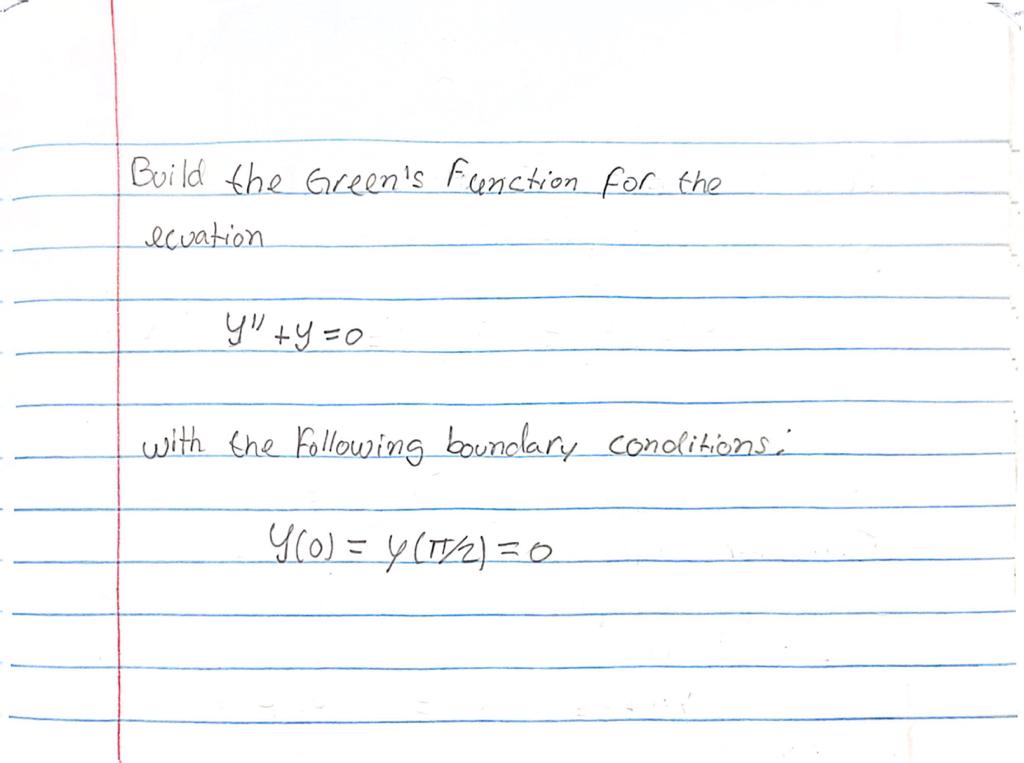 Build the Green's function for the
ecuation
y'' + y = 0
with the following boundary conditions:
y(0) = y(π/2) = 0